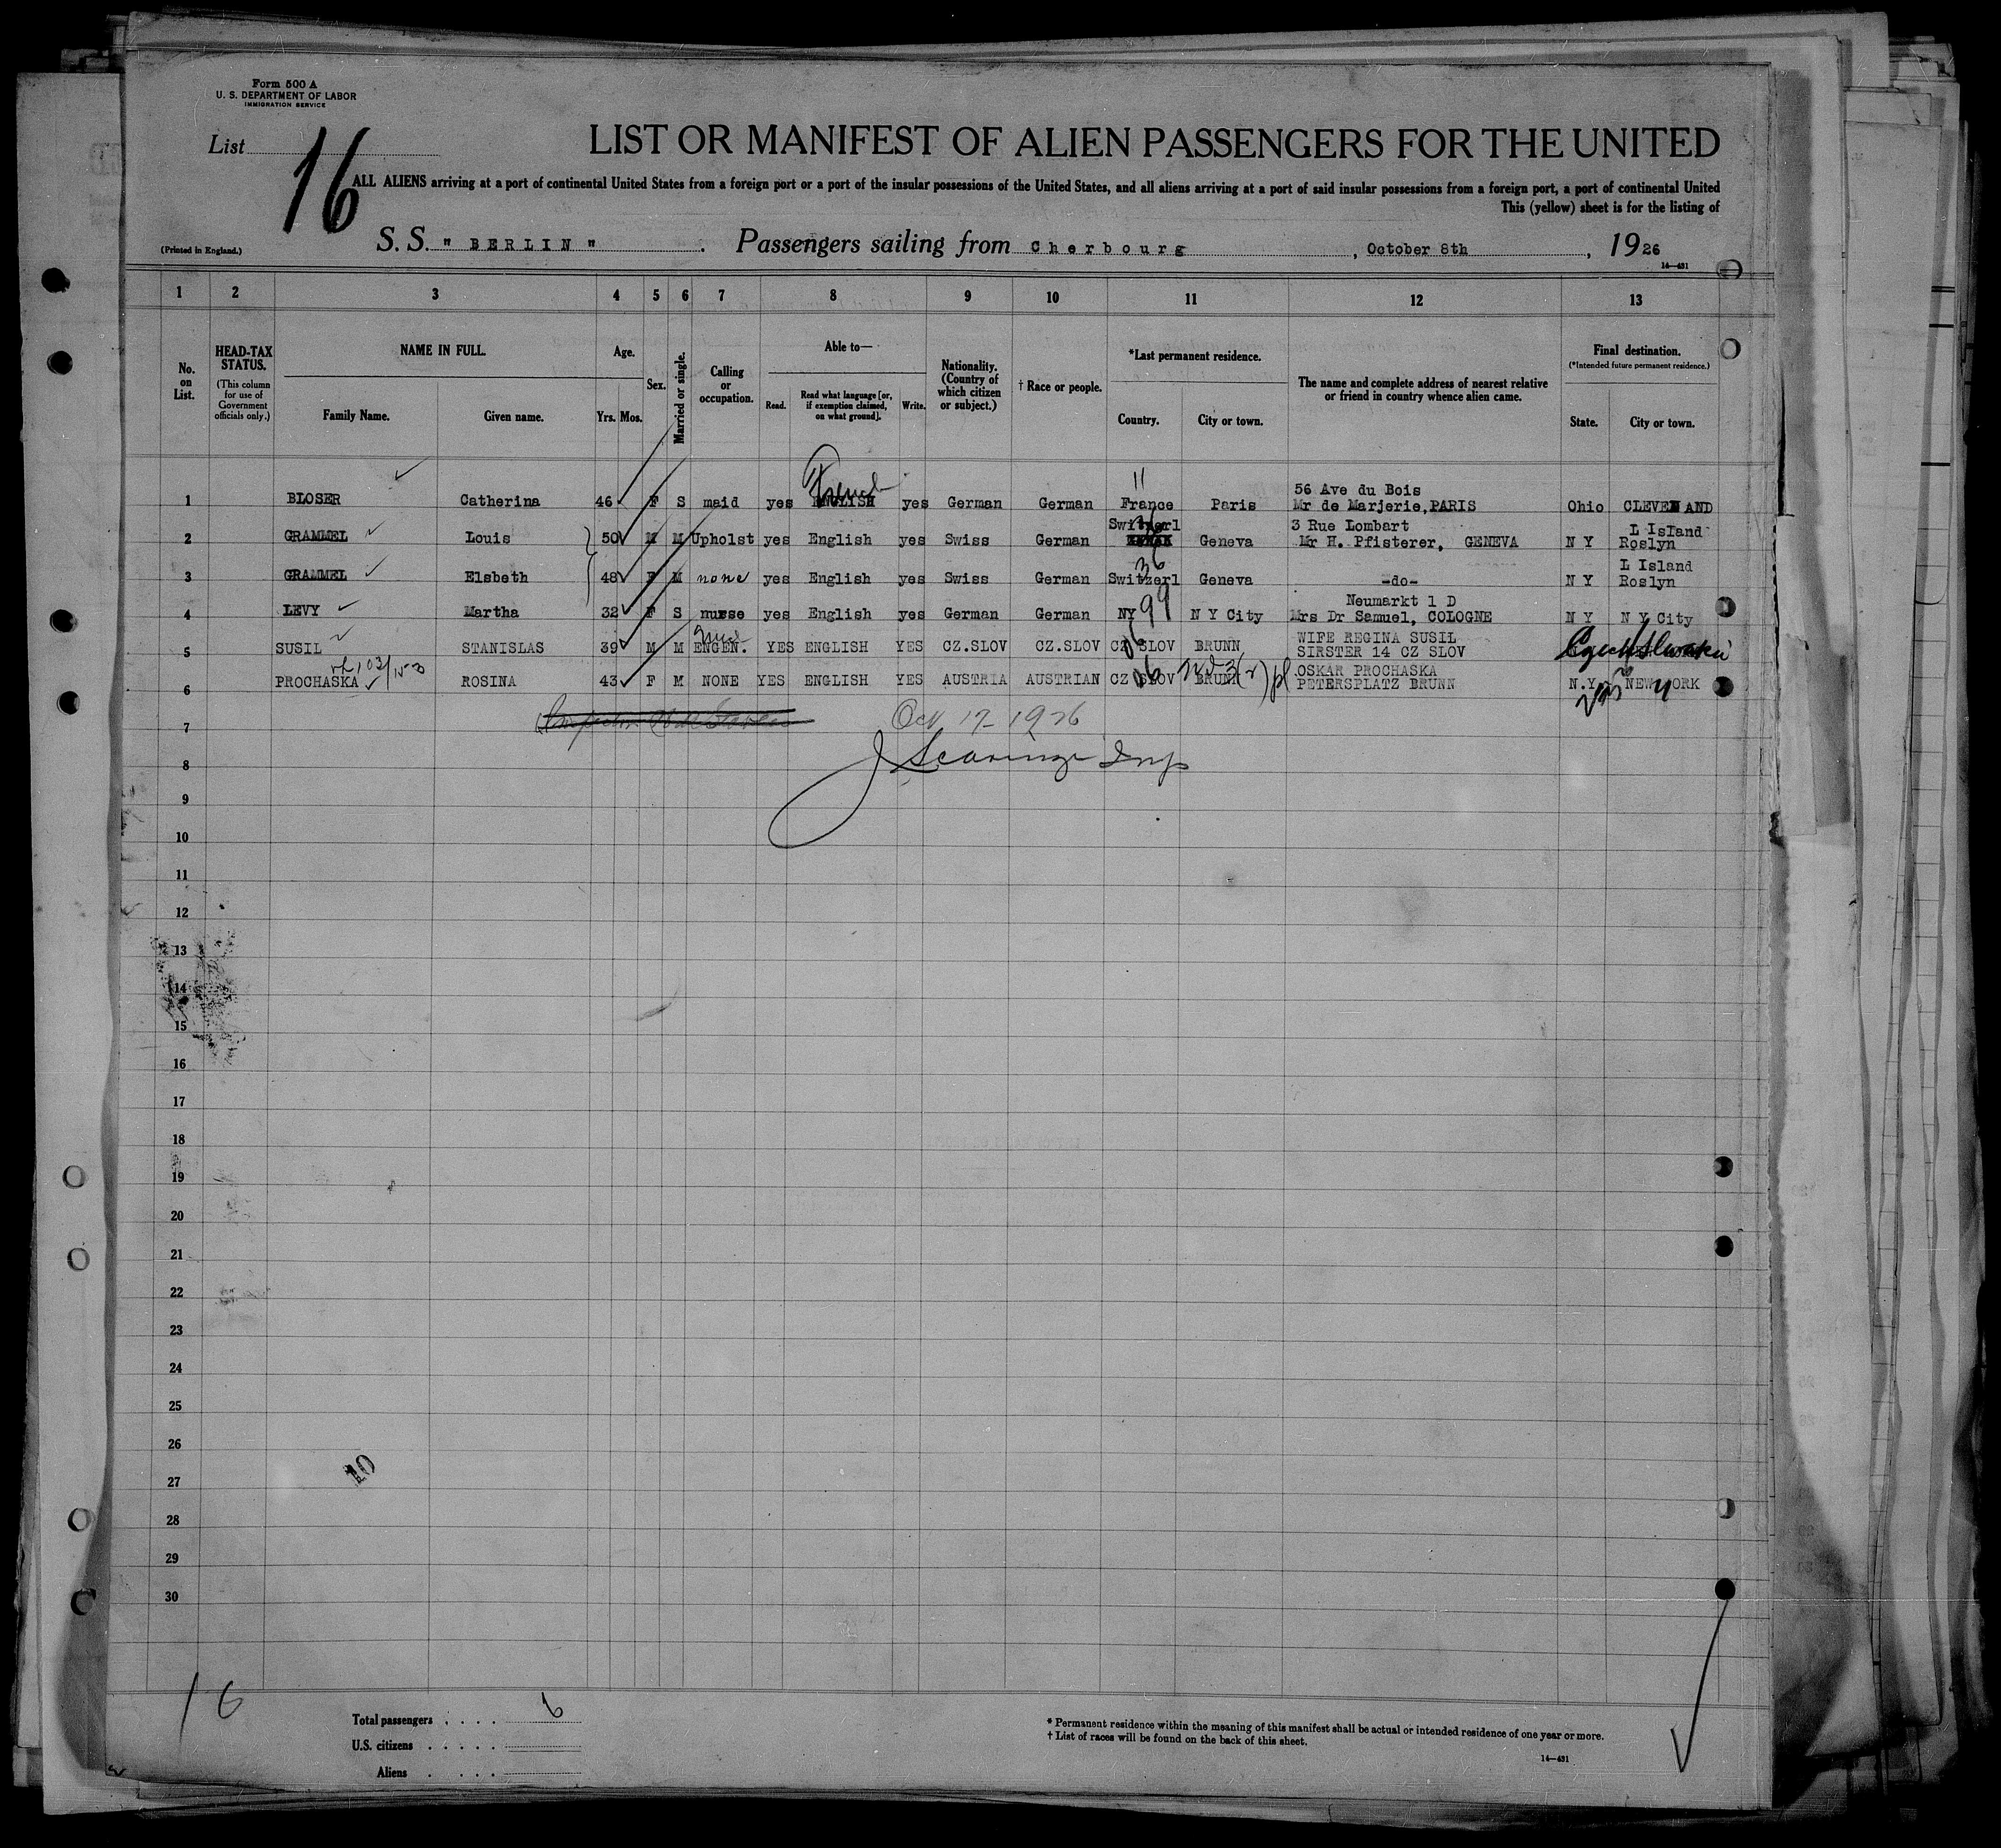 Form 500 A
U. S. DEPARTMENT OF LABOR
IMMIGRATION SERVICE
List 16
LIST OR MANIFEST OF ALIEN PASSENGERS FOR THE UNITED
ALL ALIENS arriving at a port of continental United States from a foreign port or a port of the insular possessions of the United States, and all aliens arriving at a port of said insular possessions from a foreign port, a port of continental United
This (yellow) sheet is for the listing of
(Printed in England.)
S. S. " BERLIN " . Passengers sailing from Cherbourg , October 8th , 1926
14—431
1 2 3 4 5 6 7 8 9 10 11 12 13
No. on List.
HEAD-TAX STATUS.
(This column for use of Government officials only.)
NAME IN FULL.
Family Name. Given name.
Age.
Yrs. Mos.
Sex.
Married or single.
Calling or occupation.
Able to—
Read. Read what language [or, if exemption claimed, on what ground]. Write.
Nationality. (Country of which citizen or subject.)
† Race or people.
*Last permanent residence.
Country. City or town.
The name and complete address of nearest relative or friend in country whence alien came.
Final destination.
(*Intended future permanent residence.)
State. City or town.
French 11 56 Ave du Bois
1 BLOSER Catherina 46 F S maid yes ENGLISH yes German German France Paris Mr de Marjerie, PARIS Ohio CLEVELAND
Switzerl 36 3 Rue Lombart L Island
2 GRAMMEL Louis 50 M M Upholst yes English yes Swiss German Geneva Mr H. Pfisterer, GENEVA N Y Roslyn
36 L Island
3 GRAMMEL Elsbeth 48 F M none yes English yes Swiss German Switzerl Geneva -do- N Y Roslyn
99 Neumarkt 1 D
4 LEVY Martha 32 F S nurse yes English yes German German NY N Y City Mrs Dr Samuel, COLOGNE N Y N Y City
WIFE REGINA SUSIL
5 SUSIL STANISLAS 39 M M ENGEN. YES ENGLISH YES CZ.SLOV CZ.SLOV CZ SLOV BRUNN SIRSTER 14 CZ SLOV Czechslovakia
OSKAR PROCHASKA
6 PROCHASKA ROSINA 43 F M NONE YES ENGLISH YES AUSTRIA AUSTRIAN CZ SLOV BRUNN PETERSPLATZ BRUNN N.Y. NEW YORK
7 Oct 17-1926
8
9
10
11
12
13
14
15
16
17
18
19
20
21
22
23
24
25
26
10
27
28
29
30
16
Total passengers . . . . 6
U.S. citizens . . . . .
Aliens . . . .
* Permanent residence within the meaning of this manifest shall be actual or intended residence of one year or more.
† List of races will be found on the back of this sheet.
14—431